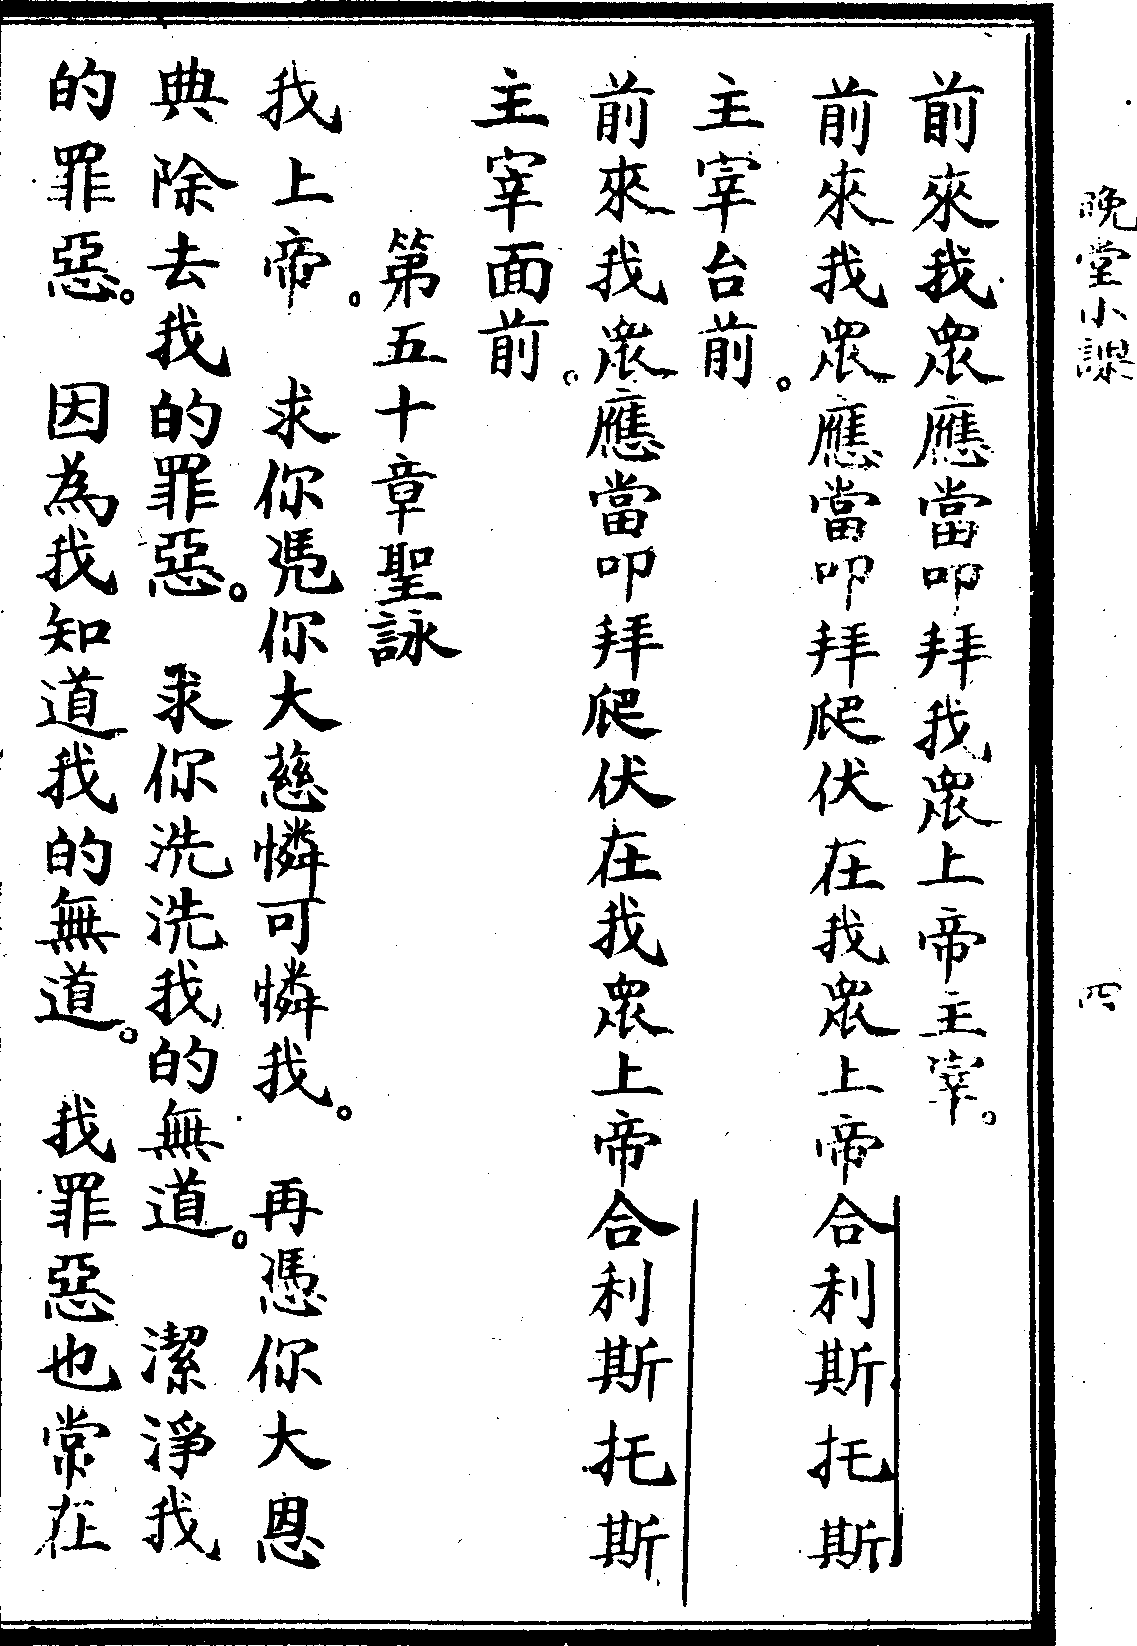 晚堂小課
四
前來我眾應當叩拜我眾上帝主宰。
前來我眾應當叩拜爬伏在我眾上帝合利斯托斯
主宰台前。
前來我眾應當叩拜爬伏在我眾上帝合利斯托斯
主宰面前。
第五十章聖詠
我上帝。求你凴你大慈憐可憐我。再憑你大恩
典除去我的罪惡。求你洗洗我的無道。潔淨我
的罪惡。因為我知道我的無道。我罪惡也常在